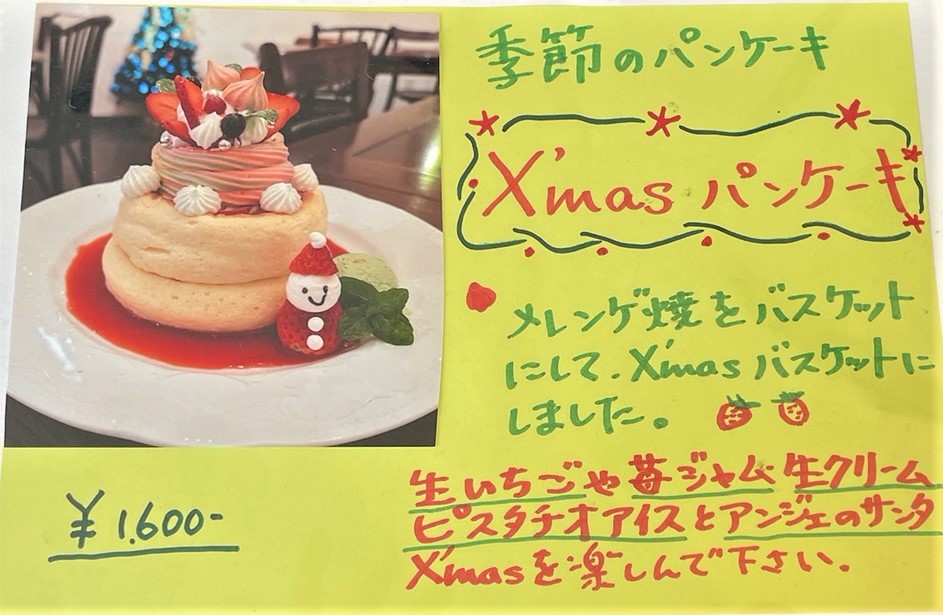 季節のパンケーキ
X'mas パンケーキ
メレンゲ焼をバスケット
にして、X'mas バスケットに
しました。
生いちごや苺ジャム 生クリーム
ピスタチオアイスとアンジェのサンタ
X'masを楽しんで下さい。
¥1,600-